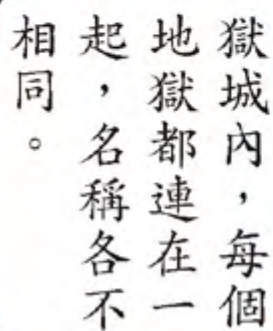 獄城內，每個
地獄都連在一
起，名稱各不
相同。